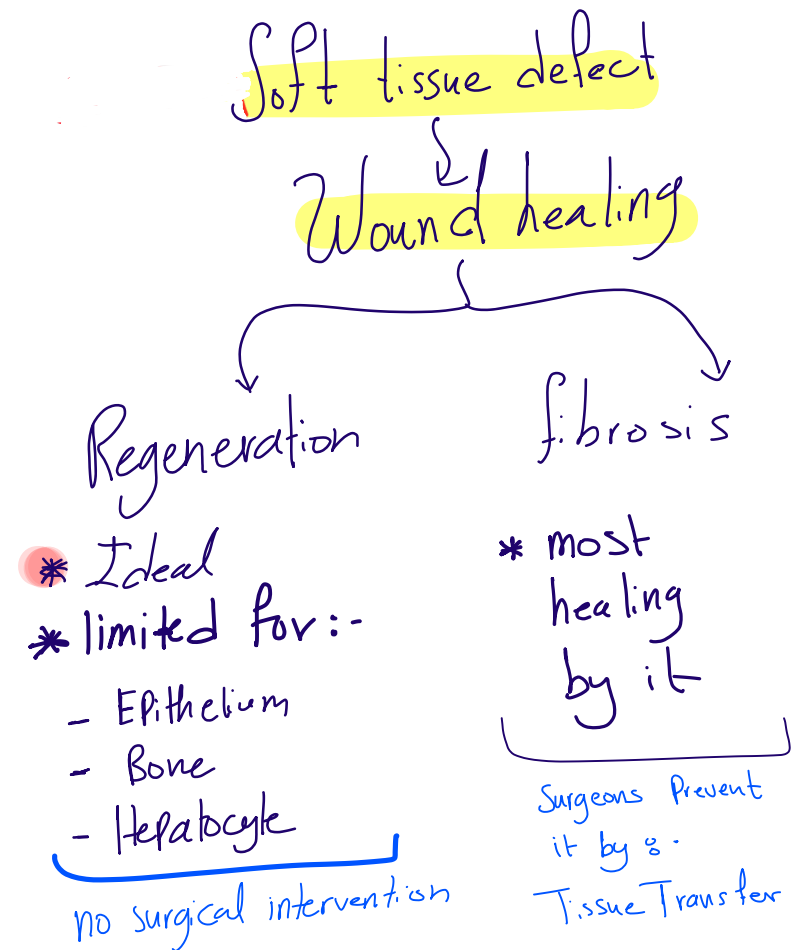 Soft tissue defect
Wound healing
Regeneration
* Ideal
* limited for:-
- Epithelium
- Bone
- Hepatocyte
no surgical intervention
fibrosis
* most
healing
by it
Surgeons Prevent
it by :-
Tissue Transfer